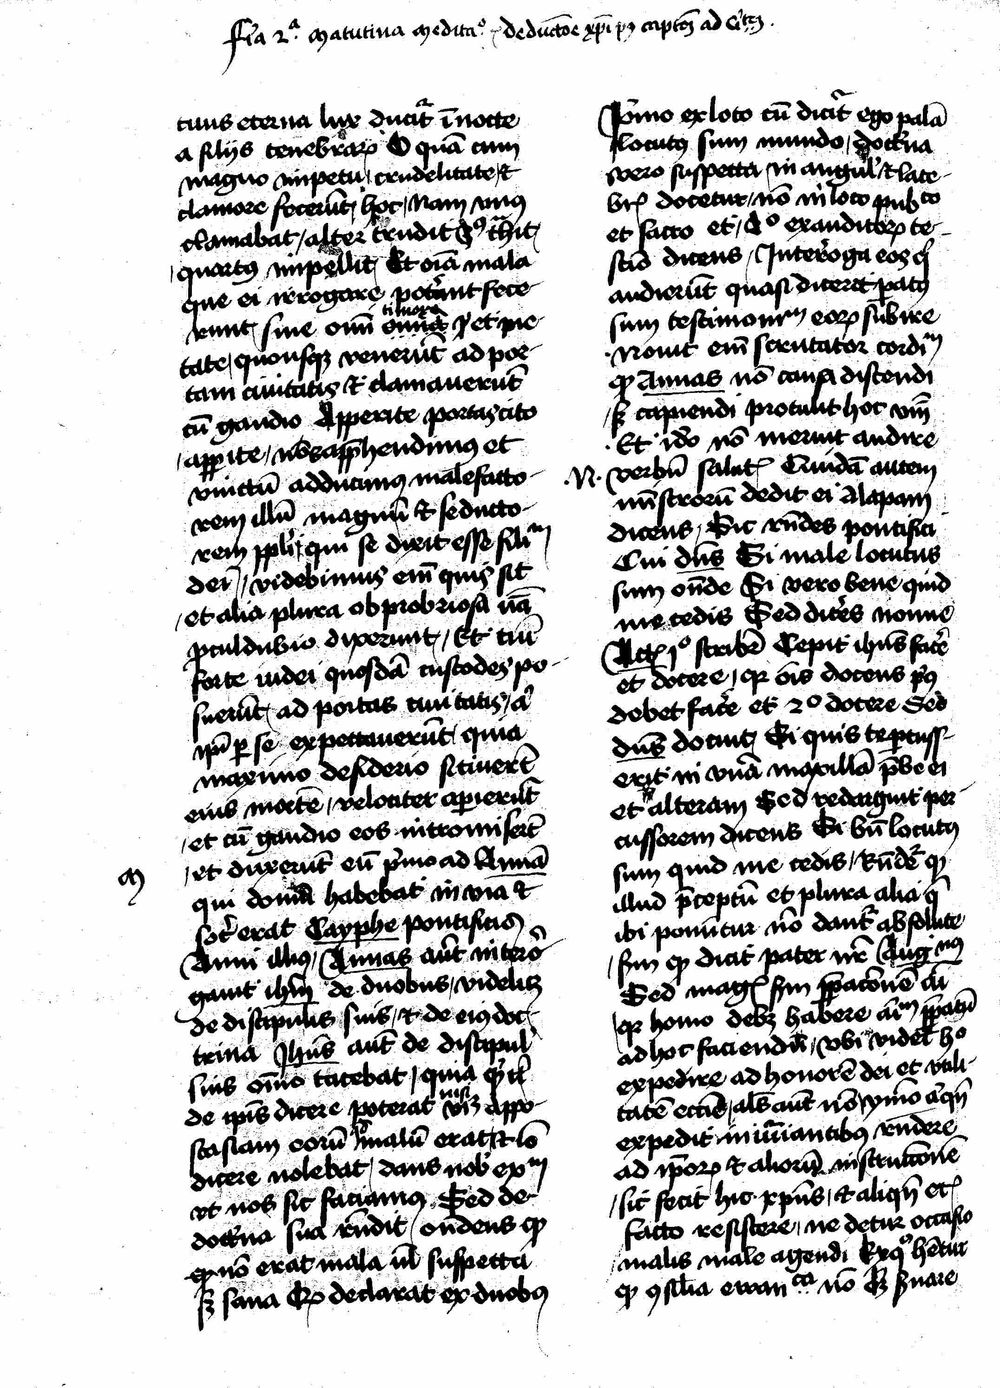 Fia 2ª matutina medita° de ductōe xp̄i ad
cuius eterna lux ducit᷑ ī nocte
a filijs tenebraꝝ O quā cum
magno impetu, crudelitate, et
clamore fecerūt, hoc, Nam unus
clamabat, alter trudit, tercius trahit
quartus impellit, Et oīa mala
que ei irrogare poterant fece-
runt, sine omī timore et pie-
tate, quousqꝫ venerūt ad por-
tam ciuitatis et clamauerūt
cū gaudio Apperite portas cito
apperite, nobis apprehendimus et
vinctū adducimus malefacto-
rem illū magnū et seducto-
rem ppli, qui se dixit esse filiū
dei, videbimus em̄ quis sit
et alia plura obprobriosa
proculdubio dixerunt, Et cum
forte iudei quosdā custodes po-
suerūt, ad portas ciuitatis, aūt
ip̄i per se expectauerūt, quia
maximo desiderio sitiuerūt
eius mortē, velociter aperierūt
et cū gaudio eos intromiserūt
M
et duxerūt eū primo ad Annā
qui domū habebat in via et
socer erat Cayphe pontificis
Anni illius, Annas aūt interro
gauit ih̄m de duobus, videlicet
de discipulis suis, et de eius doc-
trina Ihūs aūt de discipulis
suis omīo tacebat, quia
de ip̄is dicere poterat nisi appo-
stasiam eorū, malū erat, et iō
dicere nolebat, dans nobis exm̄
vt nos sic faciamus, Sed de
doctrina sua rn̄dit, ondens qꝫ
nō erat mala uel suspecta
sꝫ sana Qꝫ declarat ex duobus
Primo ex loco cū dicit᷑ ego palā
locutus sum mundo, doctrina
vero suspecta in angulis et late-
bris docetur, nō in loco pubco
et facto et, 2° ex auditorꝝ te-
stio dicens, Interroga eos qui
audierūt quasi diceret paratus
sum testimoniū eorꝝ subire
Nouit em̄ scrutator cordiū
qꝫ Annas nō causa discendi
sꝫ capiendi protulit hoc v̄m
Et ideo nō meruit audire
N
verbū salutis Quidā autem
mīstrorū dedit ei Alapam
dicens, Sic rn̄des pontifici
Cui dn̄s Si male locutus
sum on̄de Si vero bene quid
me cedis Sed diceres nonne
Act 1° scribit᷑ Cepit ihūs facere
et docere, qꝛ oīs docens prius
debet facere et 2° docere Sed
dn̄s docuit, Si quis te percuss-
erit in vnā maxillā p̄be ei
et alteram Sed redarguit per-
cussorem dicens Si bn̄ locutus
sum quid me cedis, Rn̄det᷑ qꝫ
illud p̄ceptū et plura alia que
ibi ponuntur nō dant᷑ absolute
sm̄ qꝫ dicit pater nr̄ Augus
Sed magis sm̄ p̄paracōnē aī
qꝛ homo debꝫ habere aīm p̄paratū
ad hoc faciendū, vbi videt hoc
expedire ad honorē dei et vtili-
tatē ecc̄ie, als aūt nō ymo
expedit iniuriantibus rn̄dere
ad ip̄orꝝ et aliorū instructionē
sic fecit hic xpūs, et aliqn̄ etiam
facto resistere, ne detur occasio
malis male agendi Ex quo hētur
qꝫ ꝯsilia nō seruare